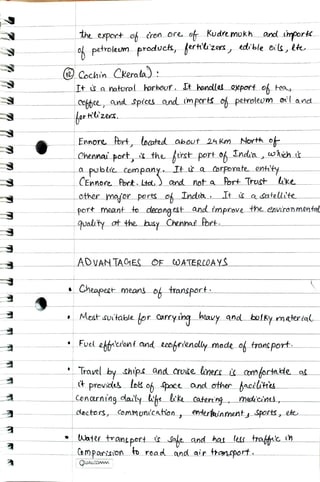 the export of iron ore of Kudremukh and imports
of petroleum products, fertilizers, edible oils, etc.
⑫ Cochin (Kerala) :
It is a natural harbour. It handles export of tea,
coffee, and spices and imports of petroleum oil and
fertilizers.
Ennore Port, located about 24 Km North of
Chennai port, is the first port of India, which is
a public company. It is a corporate entity
(Ennore Port. Ltd.) and not a Port Trust like
other major ports of India. It is a satellite
port meant to decongest and improve the environmental
quality at the busy Chennai Port.
ADVANTAGES OF WATERWAYS
• Cheapest means of transport.
• Most suitable for carrying heavy and bulky material
• Fuel efficient and ecofriendly mode of transport.
• Travel by ships and cruise liners is comfortable as
it provides lots of space and other facilities
concerning daily life like catering, medicines,
doctors, communication, entertainment, sports, etc
• Water transport is safe and has less traffic in
comparision to road and air transport.